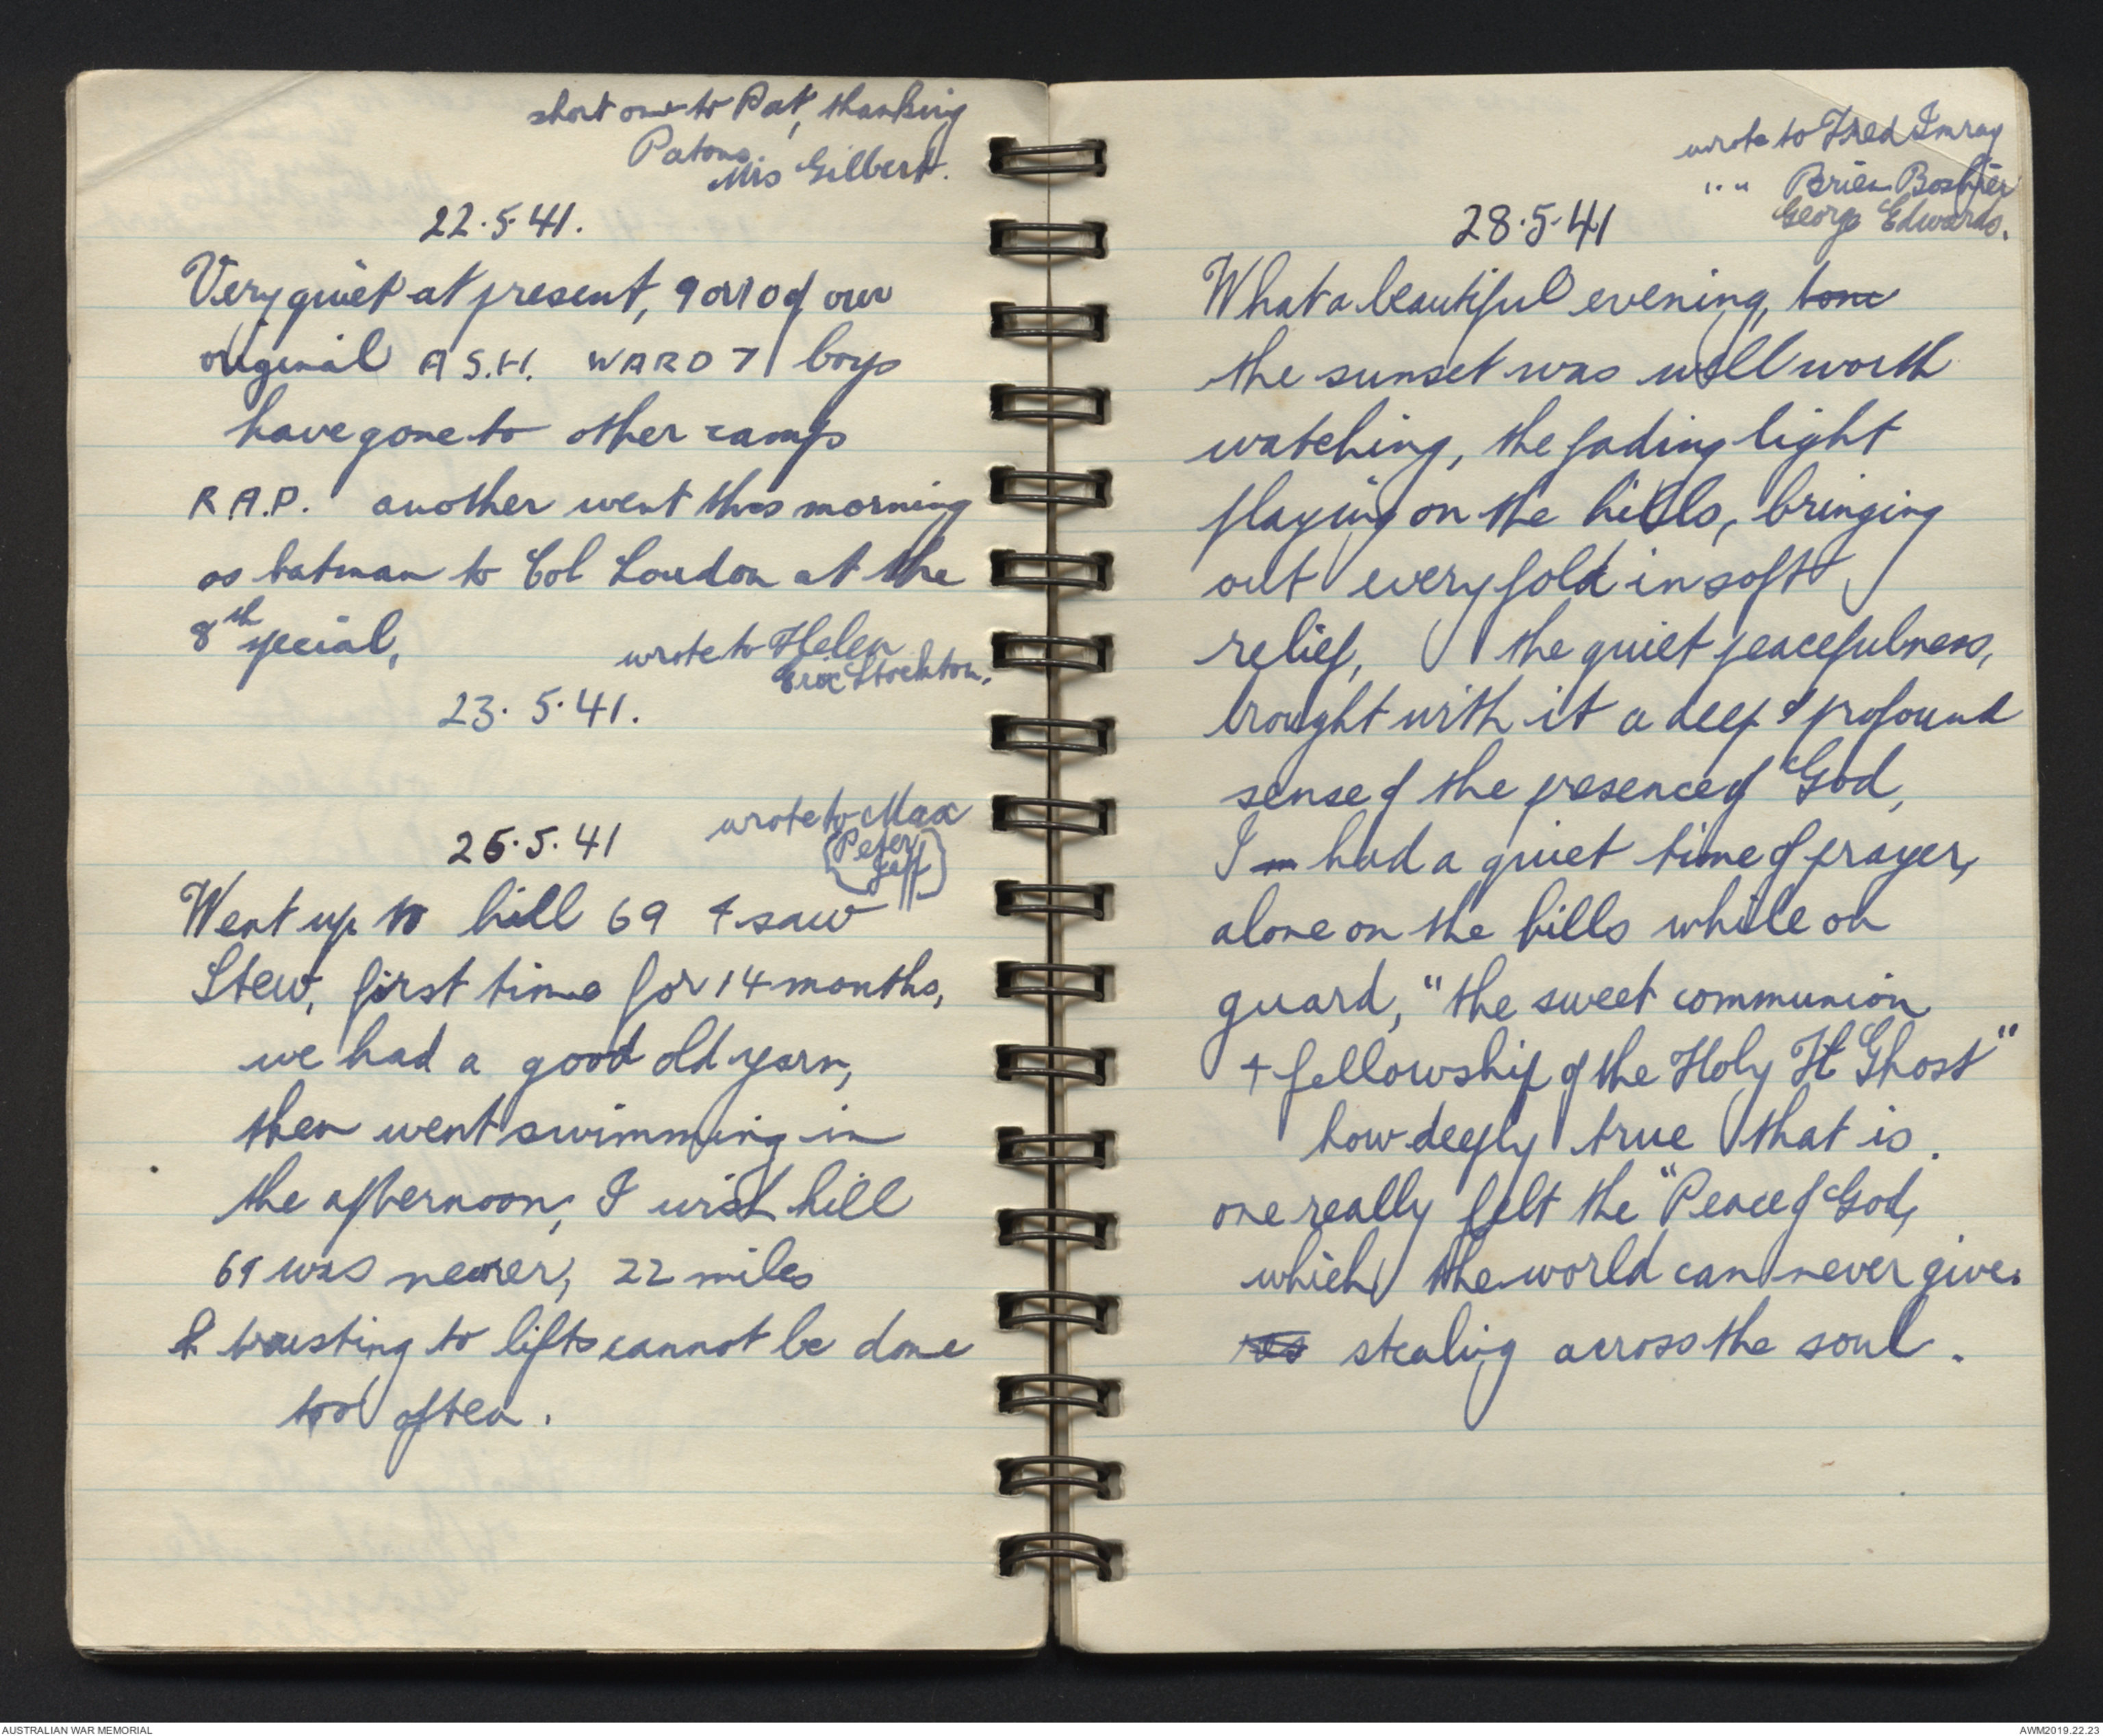 short one to Pat, thanking
Patons
Mrs Gilbert.
22.5.41.
Very quiet at present, 9 or 10 of our
original A.S.H. WARD 7 boys
have gone to other camps
R.A.P. another went this morning
as batman to Col Loudon at the
8th special,
wrote to Helen
Eric Stockton.
23.5.41.
wrote to Max
{Peter
Jeff}
26.5.41
Went up to hill 69 & saw
Stew, first time for 14 months,
we had a good old yarn,
then went swimming in
the afternoon, I wish hill
69 was nearer, 22 miles
& trusting to lifts cannot be done
too often.
wrote to Fred Imray
" " Brien Boshier
George Edwards.
28.5.41
What a beautiful evening,
the sunset was well worth
watching, the fading light
playing on the hills, bringing
out every fold in soft
relief, the quiet peacefulness,
brought with it a deep & profound
sense of the presence of God,
I had a quiet time of prayer,
alone on the hills while on
guard, "the sweet communion
& fellowship of the Holy Ghost"
how deeply true that is.
one really felt the "Peace of God,
which the world can never give.
stealing across the soul.
AUSTRALIAN WAR MEMORIAL
AWM2019.22.23